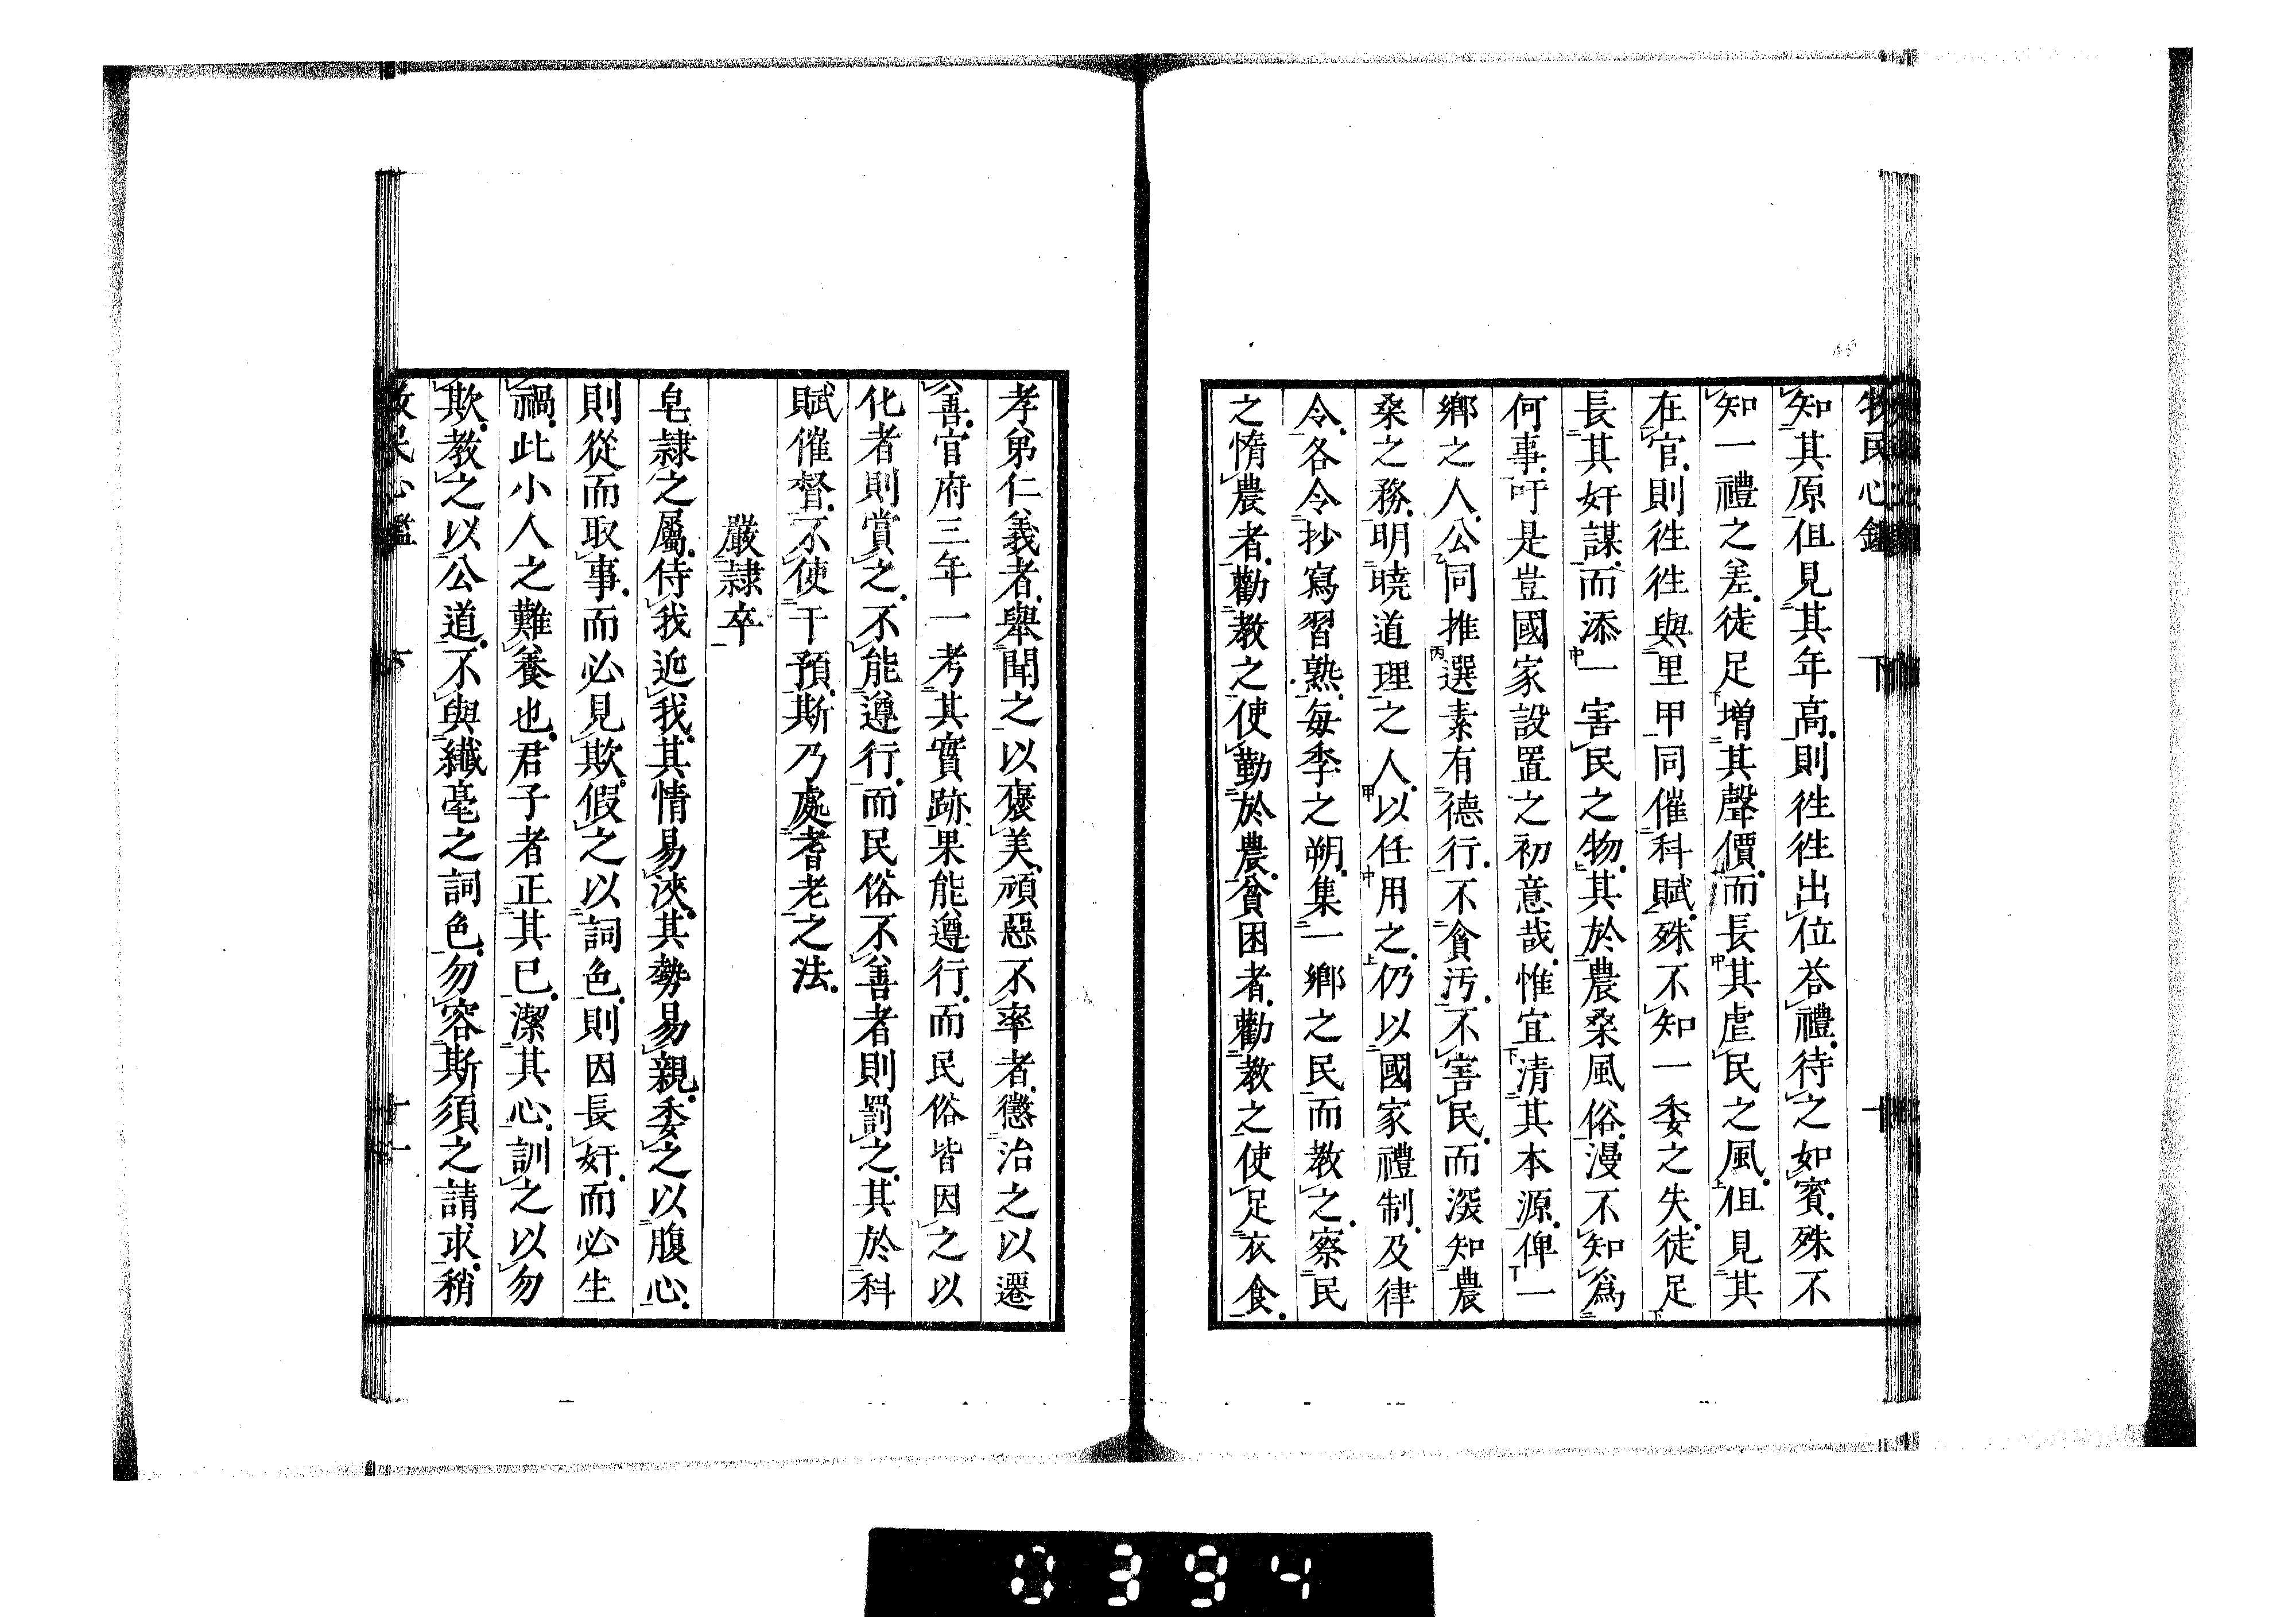 牧民心鑑 下 十
知其原但見其年高則徃徃出位荅禮待之如賓殊不
知一禮之差徒足增其聲價而長其虐民之風但見其
在官則徃徃與里甲同催科賦殊不知一委之失徒足
長其奸謀而添一害民之物其於農桑風俗漫不知爲
何事吁是豈國家設置之初意哉惟宜清其本源俾一
鄉之人公同推選素有德行不貪汚不害民而深知農
桑之務明曉道理之人以任用之仍以國家禮制及律
令各令抄寫習熟每季之朔集一鄉之民而教之察民
之惰農者勸教之使勤於農貧困者勸教之使足衣食
孝弟仁義者舉聞之以褒美頑惡不率者懲治之以遷
善官府三年一考其實跡果能遵行而民俗皆因之以
化者則賞之不能遵行而民俗不善者則罰之其於科
賦催督不使干預斯乃處耆老之法
嚴隷卒
皂隷之屬侍我近我其情易浹其勢易親委之以腹心
則從而取事而必見欺假之以詞色則因長奸而必生
禍此小人之難養也君子者正其已潔其心訓之以勿
欺教之以公道不與纖毫之詞色勿容斯須之請求稍
牧民心鑑 下 十一
0394